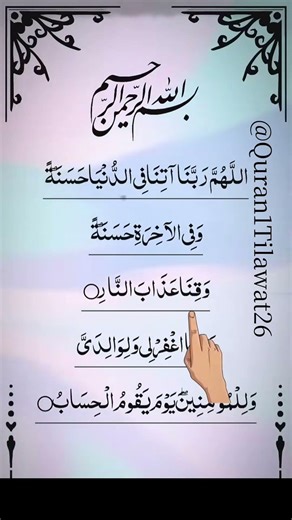 بسم الله الرحمن الرحيم
اللَّهُمَّ رَبَّنَا آتِنَا فِي الدُّنْيَا حَسَنَةً
وَفِي الْآخِرَةِ حَسَنَةً
وَقِنَا عَذَابَ النَّارِ
اغْفِرْ لِي وَلِوَالِدَيَّ
وَلِلْمُؤْمِنِينَ يَوْمَ يَقُومُ الْحِسَابُ
@Quran1Tilawat26